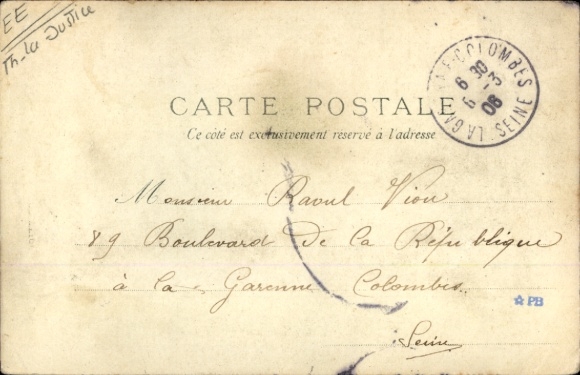 EE
Th. La Justice
LA GARENNE-COLOMBES
6 30
6 -3
06
SEINE
CARTE POSTALE
Ce côté est exclusivement reservé à l'adresse
Monsieur Raoul Viou
89 Boulevard De la République
à la Garenne Colombes
Seine
PB